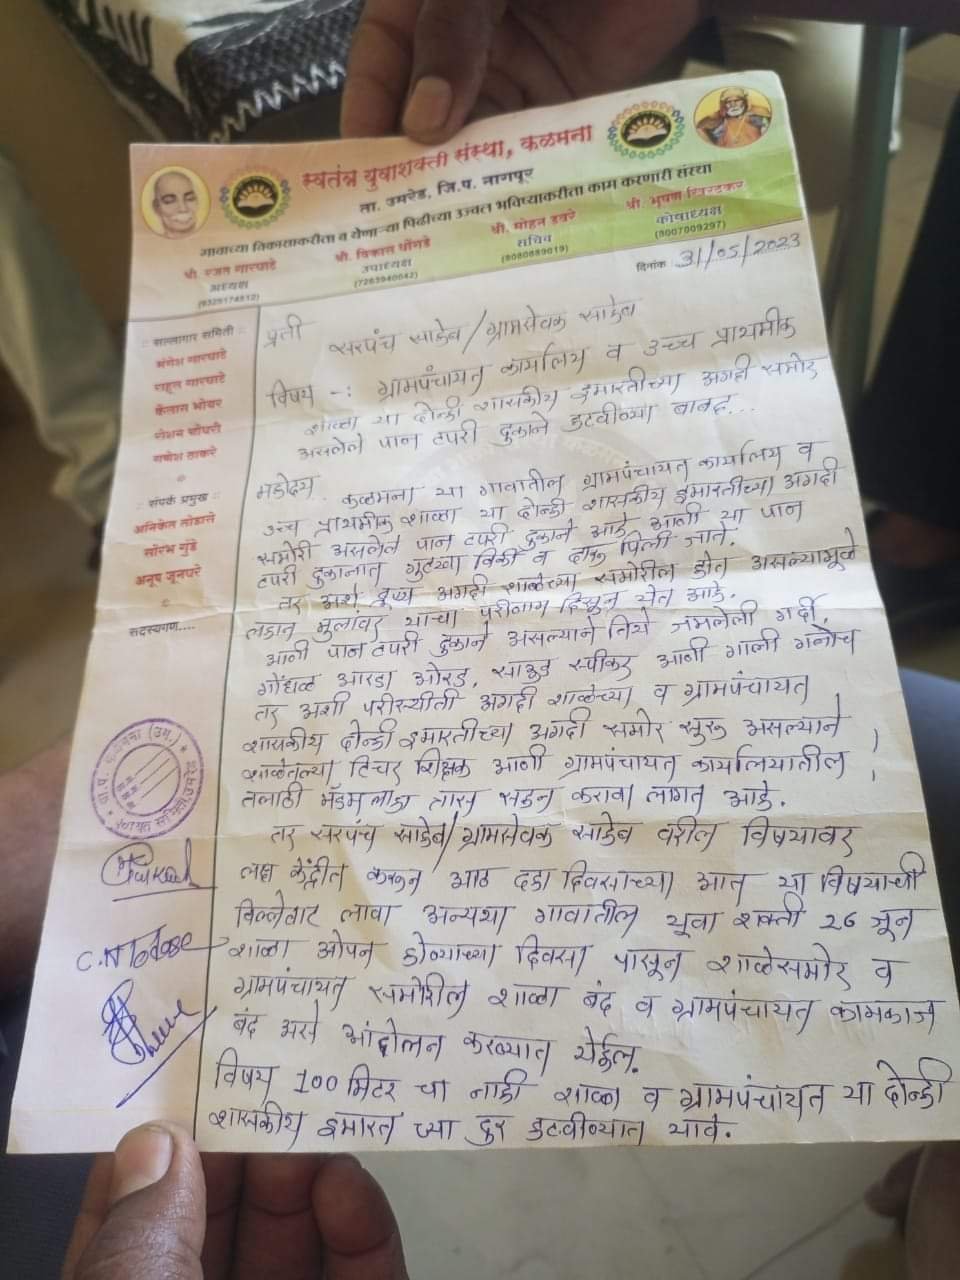 स्वतंत्र युवाशक्ती संस्था, कळमना
ता. उमरेड, जि.प. नागपूर
गावाच्या विकासाकरीता व येणाऱ्या पिढीच्या उज्वल भविष्याकरीता काम करणारी संस्था
श्री. रजत गारघाटे
अध्यक्ष
(9325174512)
श्री. विकास धोंगडे
उपाध्यक्ष
(7263940042)
श्री. मोहन डवरे
सचिव
(9080889019)
श्री. भूषण खिरडकर
कोषाध्यक्ष
(9007009297)
दिनांक 31/05/2023
:: सल्लागार समिती ::
मंगेश गारघाटे
राहुल गारघाटे
कैलास भोयर
रोशन चौधरी
गणेश ठाकरे
:: संपर्क प्रमुख ::
अनिकेत तोडासे
सौरभ गुंडे
अनूप जूनघरे
सदस्यगण....
प्रती
सरपंच साहेब/ग्रामसेवक साहेब
विषय -: ग्रामपंचायत कार्यालय व उच्च प्राथमीक
शाळा या दोन्ही शासकीय इमारतीच्या अगदी समोर
असलेले पान टपरी दुकाने हटवीण्या बाबद...
महोदय,
कळमना या गावातील ग्रामपंचायत कार्यालय व
उच्च प्राथमीक शाळा या दोन्ही शासकीय इमारतीच्या अगदी
समोरी असलेले पान टपरी दुकाने आहे आणी या पान
टपरी दुकानात गुटखा विक्री व दारू पिली जाते.
तर अशे दृष्य अगदी शाळेच्या समोरील होत असल्यामूळे
लहान मुलांवर याचा परीणाम दिसून येत आहे.
आणी पान टपरी दुकाने असल्याने तिथे जमलेली गर्दी,
गोंधळ आरडा ओरड, साऊड स्पीकर आणी गाली गलोच
तर अशी परीस्थीती अगदी शाळेच्या व ग्रामपंचायत
शासकीय दोन्ही इमारतीच्या अगदी समोर सुरु असल्याने
शाळेतल्या टिचर शिक्षक आणी ग्रामपंचायत कार्यालयातील
तलाठी मॅडमला हा त्रास सहन करावा लागत आहे.
तर सरपंच साहेब/ग्रामसेवक साहेब वरील विषयावर
लक्ष केंद्रीत करून आठ दहा दिवसाच्या आत या विषयाची
विल्लेवाट लावा अन्यथा गावातील यूवा शक्ती 26 जून
शाळा ओपन होण्याच्या दिवसा पासून शाळेसमोर व
ग्रामपंचायत समोरील शाळा बंद व ग्रामपंचायत कामकाज
बंद असे आंदोलन करण्यात येईल.
विषय 100 मिटर चा नाही शाळा व ग्रामपंचायत या दोन्ही
शासकीय इमारत च्या दुर हटवीण्यात यावे.